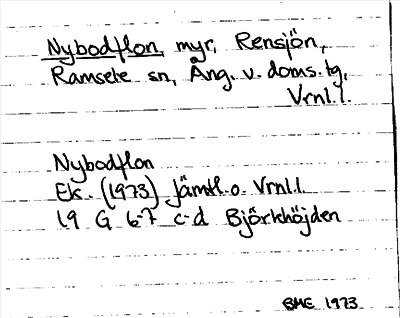 Nybodflon, myr, Rensjön,
Ramsele sn, Ång. v. doms.tg,
Vrnl.l.
Nybodflon
Ek. (1973) Jämtl. o. Vrnl.l.
19 G 6-7 c-d Björkhöjden
BME 1973